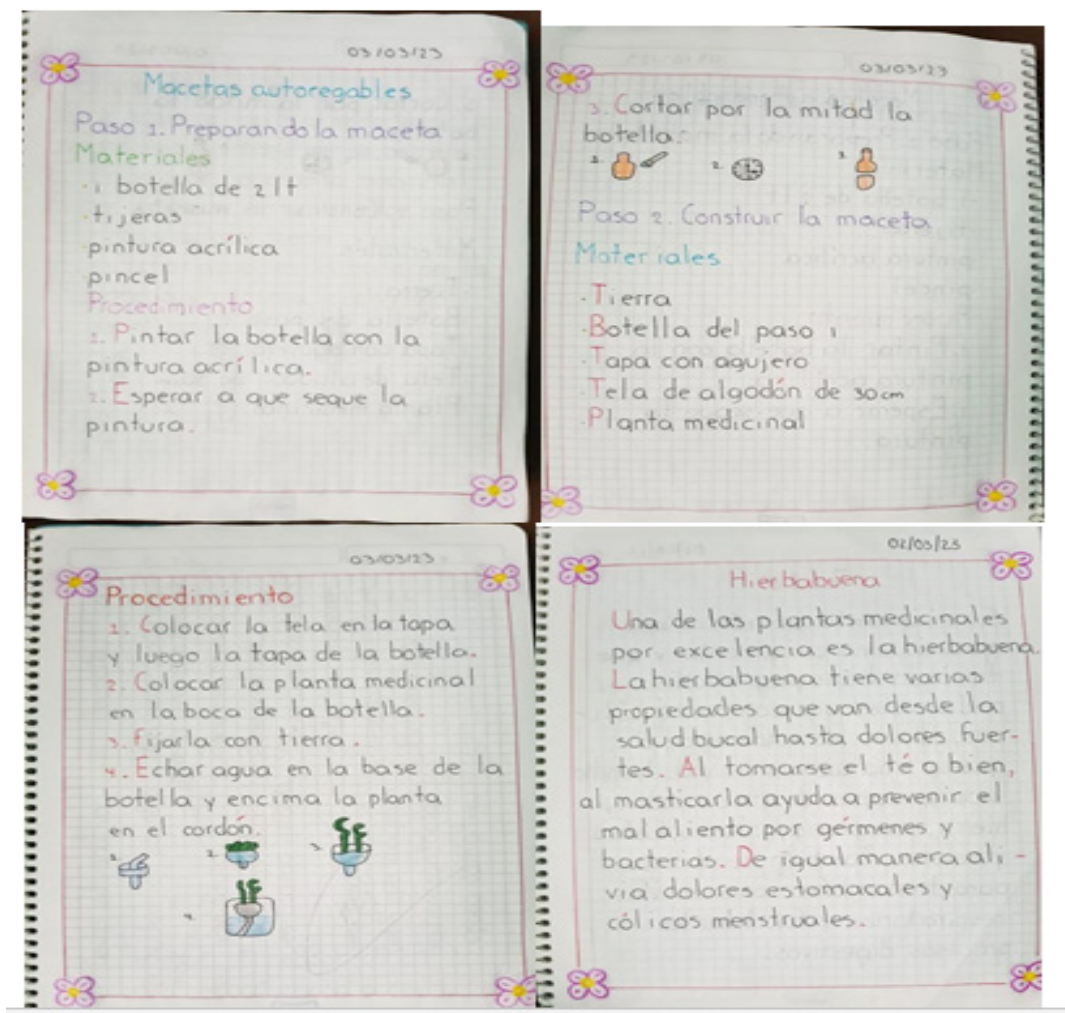 03/03/23
Macetas autoregables
Paso 1. Preparando la maceta
Materiales
· 1 botella de 2 lt
· tijeras
· pintura acrílica
· pincel
Procedimiento
1. Pintar la botella con la
pintura acrílica.
2. Esperar a que seque la
pintura.
03/03/23
3. Cortar por la mitad la
botella.
1. 2. 3.
Paso 2. Construir la maceta
Materiales
· Tierra
· Botella del paso 1
· Tapa con agujero
· Tela de algodón de 30cm
· Planta medicinal
03/03/23
Procedimiento
1. Colocar la tela en la tapa
y luego la tapa de la botella.
2. Colocar la planta medicinal
en la boca de la botella.
3. Fijarla con tierra.
4. Echar agua en la base de la
botella y encima la planta
en el cordón.
1. 2. 3.
4.
02/03/23
Hierbabuena
Una de las plantas medicinales
por excelencia es la hierbabuena.
La hierbabuena tiene varias
propiedades que van desde la
salud bucal hasta dolores fuer-
tes. Al tomarse el té o bien,
al masticarla ayuda a prevenir el
mal aliento por gérmenes y
bacterias. De igual manera ali-
via dolores estomacales y
cólicos menstruales.